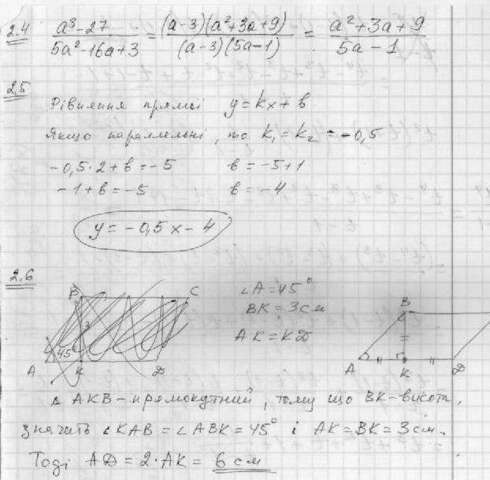 2.4 (a³-27)/(5a²-16a+3) = ((a-3)(a²+3a+9))/((a-3)(5a-1)) = (a²+3a+9)/(5a-1)
2.5
Рівняння прямої y=kx+в
Якщо паралельні, то k₁=k₂=-0,5
-0,5·2+в=-5 в=-5+1
-1+в=-5 в=-4
y=-0,5x-4
2.6
B C
∠A=45°
BK=3см
AK=KD
3
45°
A K D
B
A K D
△ AKB-прямокутний, тому що BK-висота,
значить ∠KAB=∠ABK=45° і AK=BK=3см.
Тоді AD=2·AK=6см